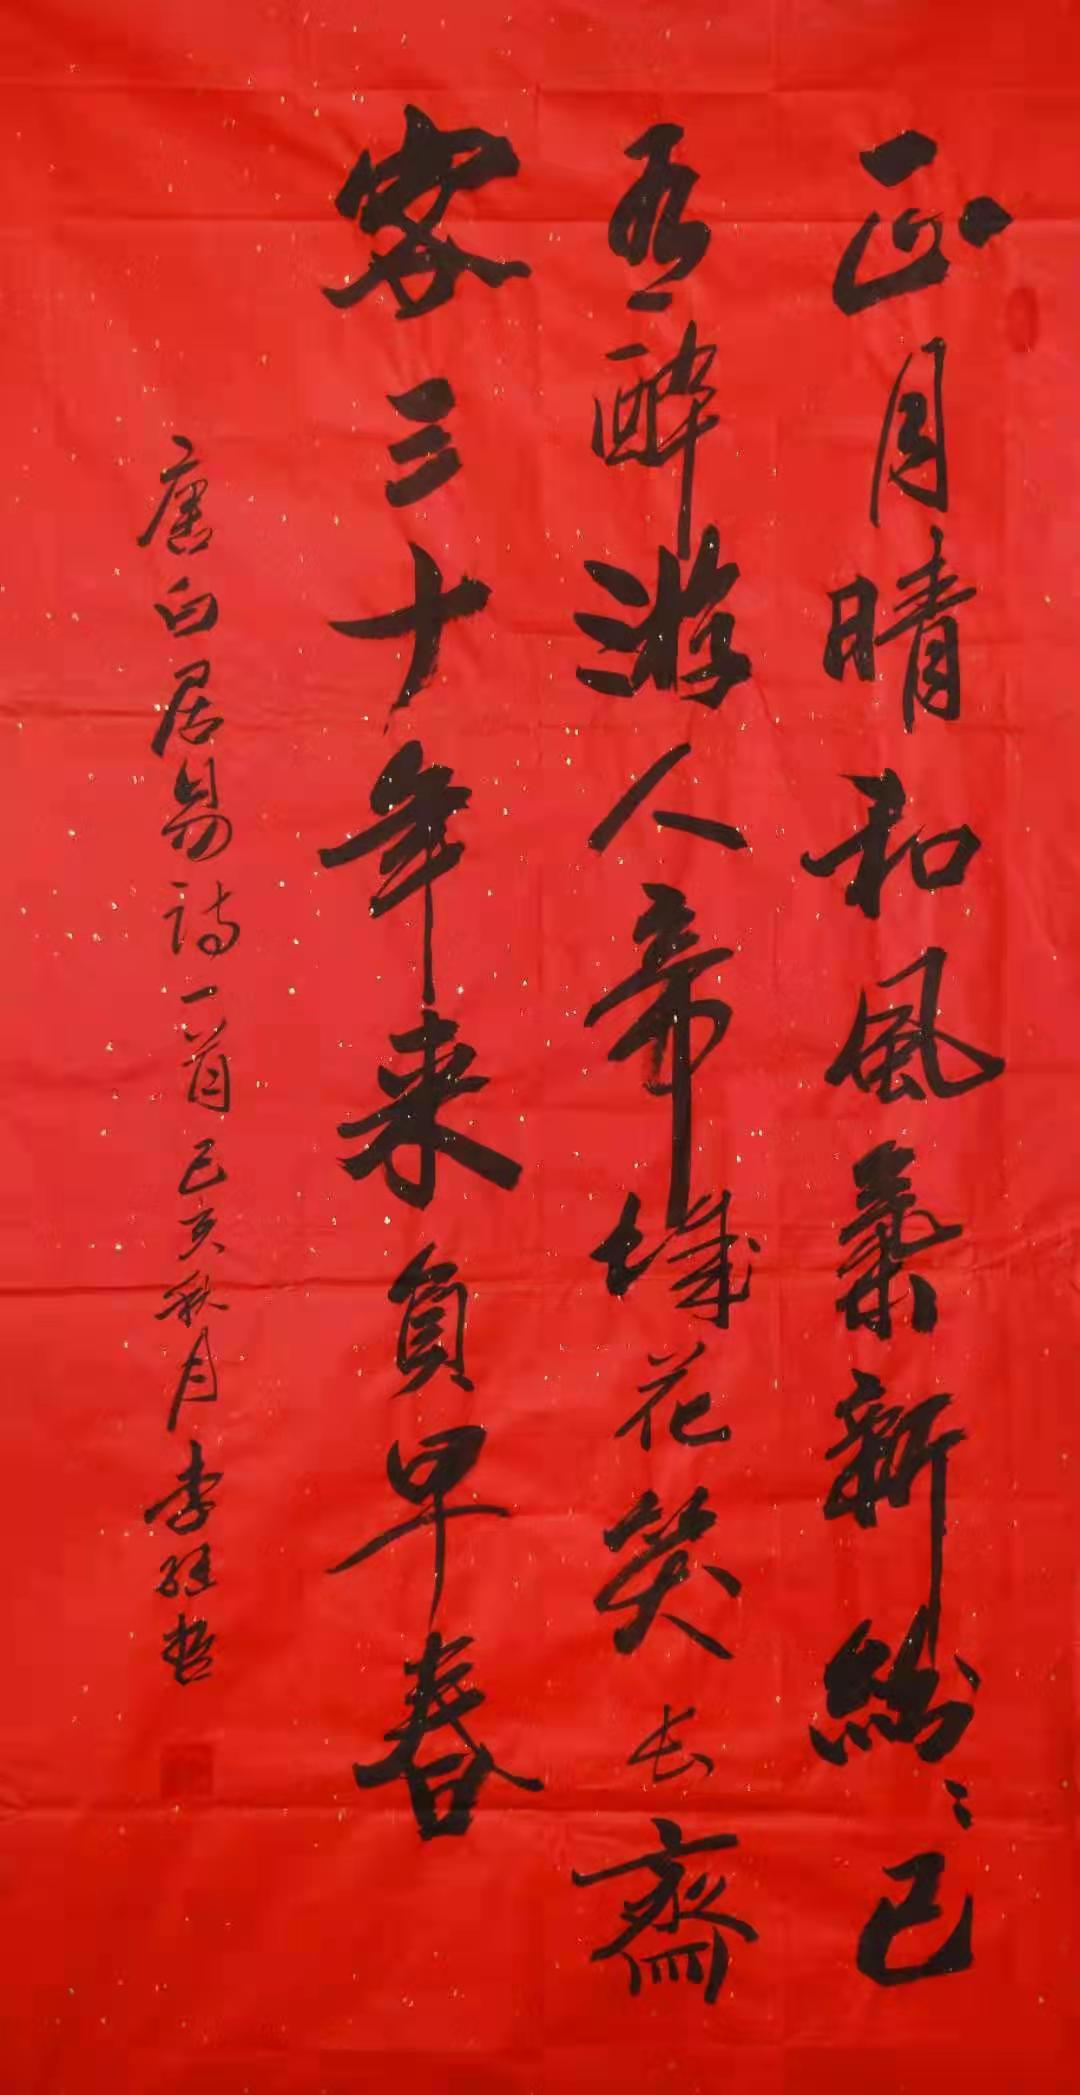 正月晴和風氣新紛〻已
有醉游人帝城花笑长齋
客三十年来負早春
唐白居易詩一首己亥秋月李經哲